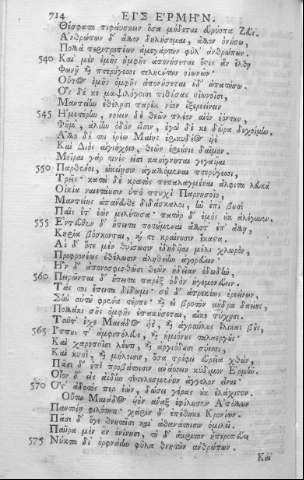 714 ΕΙΣ ἙΡΜΗΝ.
Θέσφατα πιφαύσκειν ὅσα μήδεται εὐρύοπα Ζεύς.
Ἀνθρώπων δ' ἄλλον δηλήσομαι, ἄλλον ὀνήσω,
Πολλὰ περιτροπέων ἀμεγάρτων φῦλ' ἀνθρώπων.
540 Καὶ μὲν ἐμῆς ὀμφῆς ἀπονήσεται ὅστις ἂν ἔλθῃ
Φωνῇ καὶ πτερύγεσσι τεληέντων οἰωνῶν·
Οὗτος ἐμῆς ὀμφῆς ἀπονήσεται οὐδ' ἀπατήσω.
Ὃς δέ κε μαψιλόγοισι πιθήσας οἰωνοῖσι,
Μαντείην ἐθέλῃσι παρὲκ νόον ἐξερεείνειν
545 Ἡμετέρην, νοέειν δὲ θεῶν πλέον αἰὲν ἐόντων,
Φήμ', ἁλίην ὁδὸν εἶσιν, ἐγὼ δέ κε δῶρα δεχοίμην.
Ἄλλο δέ τοι ἐρέω Μαίης ἐρικυδέος υἱὲ
Καὶ Διὸς αἰγιόχοιο, θεῶν ἐριούνιε δαῖμον.
Μοῖραι γάρ τινές εἰσι κασίγνηται γεγαυῖαι
550 Παρθένοι, ὠκείῃσιν ἀγαλλόμεναι πτερύγεσσι,
Τρεῖς· κατὰ δὲ κρατὸς πεπαλαγμέναι ἄλφιτα λευκὰ
Οἰκία ναιετάουσιν ὑπὸ πτυχὶ Παρνησοῖο,
Μαντείης ἀπάνευθε διδάσκαλοι, ἣν ἐπὶ βουσὶ
Παῖς ἔτ' ἐὼν μελέτησα· πατὴρ δ' ἐμὸς οὐκ ἀλέγυνεν.
555 Ἐντεῦθεν δ' ἔπειτα ποτώμεναι ἄλλοτ' ἐπ' ἄλλῃ,
Κηρία βόσκονται, καί τε κραίνουσιν ἕκαστα.
Αἱ δ' ὅτε μὲν θυΐσωσιν ἐδηδυῖαι μέλι χλωρὸν,
Προφρονέως ἐθέλουσιν ἀληθείην ἀγορεύειν·
Ἢν δ' ἀπονοσφισθῶσι θεῶν ἡδεῖαν ἐδωδὴν,
560 Πειρῶνται δ' ἔπειτα παρὲξ ὁδὸν ἡγεμονεύειν.
Τάς τοι ἔπειτα δίδωμι· σὺ δ' ἀτρεκέως ἐρεείνων,
Σὴν αὐτοῦ φρένα τέρπε· καὶ εἰ βροτὸν ἄνδρα δαείης,
Πολλάκι σῆς ὀμφῆς ἐπακούσεται, αἴκε τύχῃσι.
Ταῦτ' ἔχε Μαιάδος υἱὲ, καὶ ἀγραύλους ἕλικας βοῦς,
565 Ἵππους τ' ἀμφιπόλευε, καὶ ἡμιόνους ταλαεργούς·
Καὶ χαροποῖσι λέουσι, καὶ ἀργιόδουσι σύεσσι,
Καὶ κυσὶ, καὶ μήλοισιν, ὅσα τρέφει εὐρεῖα χθὼν,
Πᾶσι δ' ἐπὶ προβάτοισιν ἀνάσσειν κύδιμον Ἑρμῆν.
Οἶον δ' εἰς Ἀίδην τετελεσμένον ἄγγελον εἶναι·
570 Ὅς τ' ἄδοτός περ ἐὼν, δώσει γέρας οὐκ ἐλάχιστον.
Οὕτω Μαιάδος υἱὸν ἄναξ ἐφίλησεν Ἀπόλλων
Παντοίῃ φιλότητι· χάριν δ' ἐπέθηκε Κρονίων.
Πᾶσι δ' ὅγε θνητοῖσι καὶ ἀθανάτοισιν ὁμιλεῖ.
Παῦρα μὲν οὖν ὀνίνησι, τὸ δ' ἄκριτον ἠπεροπεύει
575 Νύκτα δι' ὀρφναίην φῦλα θνητῶν ἀνθρώπων.
Καὶ